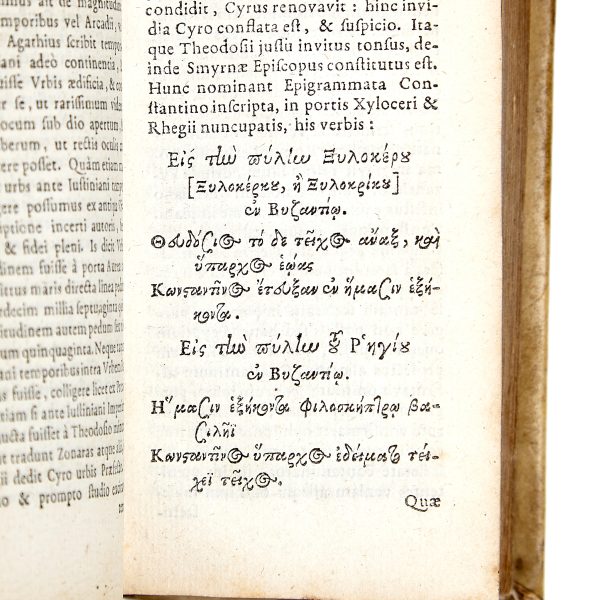 mium ait de magnitudin
emporibus vel Arcadii, v
Agathius scribit tempo
iani adeo continentia, &
uisse Vrbis ædificia, & co
er se, ut rarissimum vide
locum sub dio apertum.
berum, ut rectis oculis
cere posset. Quàm etiam
urbs ante Iustiniani temp
gere possumus ex antiqua
iptione incerti autoris,
& fidei pleni. Is dicit Vrb
dinem fuisse à porta Aurea
ittus maris directa linea ped
rdecim millia septuaginta
titudinem autem pedum sex
um quinquaginta. Neque
ani temporibus intra Vrbem
as fuisse, colligere licet ex Pro
etiam si ante Iustiniani Impe
ucta fuisset à Theodosio mino
ut tradunt Zonaras atque
ii dedit Cyro urbis Præfe
o & prompto studio
condidit, Cyrus renovavit: hinc invi-
dia Cyro conflata est, & suspicio. Ita-
que Theodosii jussu invitus tonsus, de-
inde Smyrnæ Episcopus constitutus est.
Hunc nominant Epigrammata Con-
stantino inscripta, in portis Xyloceri &
Rhegii nuncupatis, his verbis:
Εἰς τὴν πύλην Ξυλοκέρου
[Ξυλοκέρκου, ἢ Ξυλοκρίκου]
ἐν Βυζαντίῳ.
Θευδόσιος τό δε τεῖχος ἄναξ, καὶ
ὕπαρχος ἑῴας
Κωνσταντῖνος ἔτευξαν ἐν ἤμασιν ἑξή-
κοντα.
Εἰς τὴν πύλην τοῦ Ῥηγίου
ἐν Βυζαντίῳ.
Ἤμασιν ἑξήκοντα φιλοσκήπτρῳ βα-
σιλῆϊ
Κωνσταντῖνος ὕπαρχος ἐδείματο τεί-
χεϊ τεῖχος.
Quæ